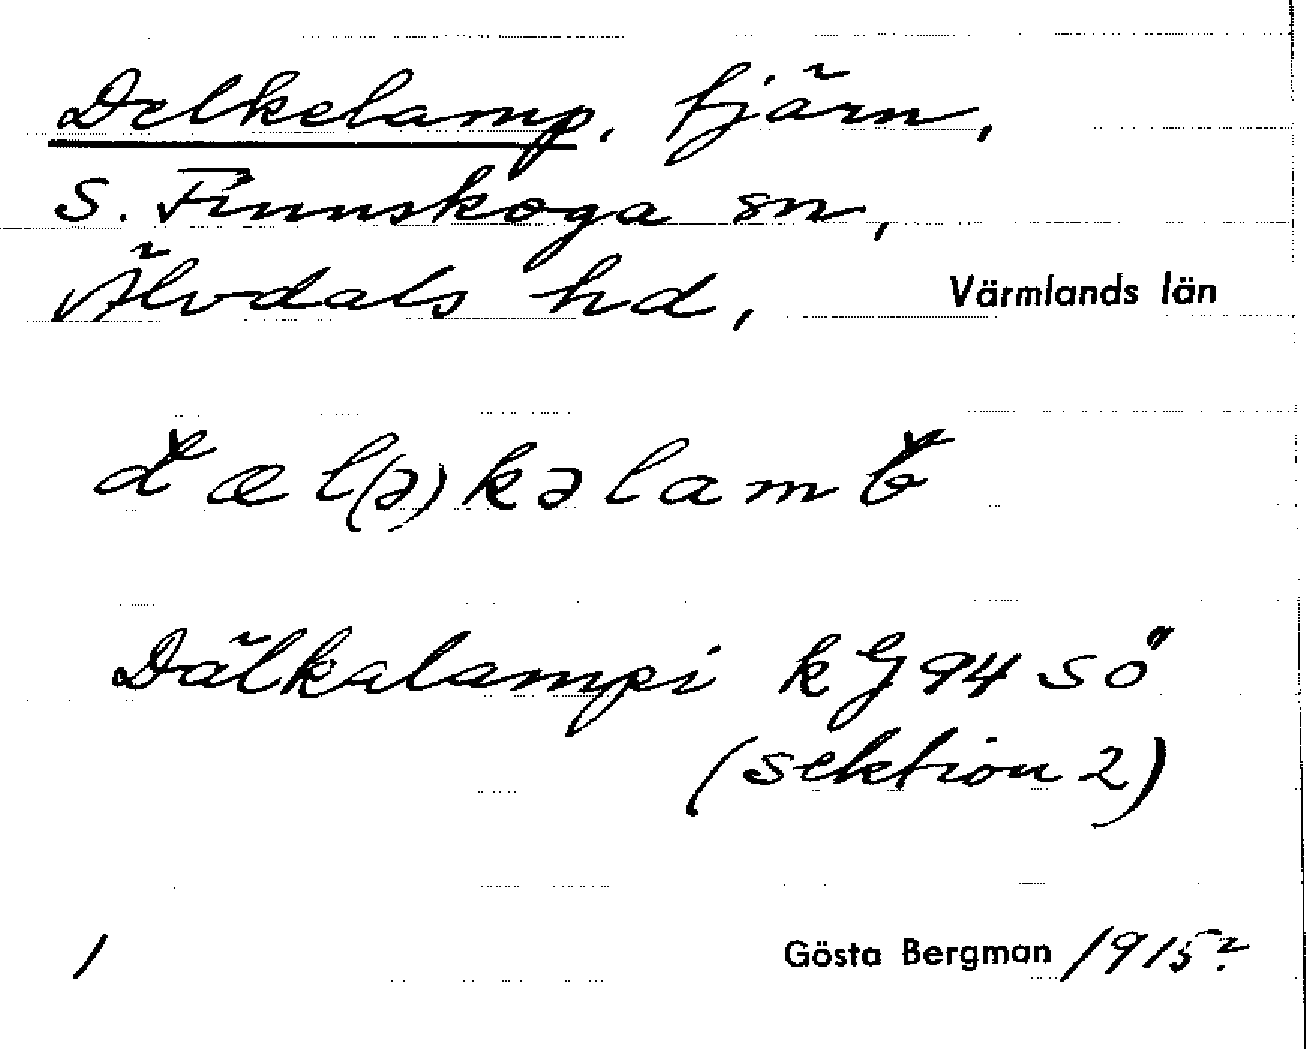 Delkelamp, tjärn,
S. Finnskoga sn,
Älvdals hd, Värmlands län
dæl(ə)kəlamb
Dälkalampi kG94 SÖ
(sektion 2)
1 Gösta Bergman 1915?